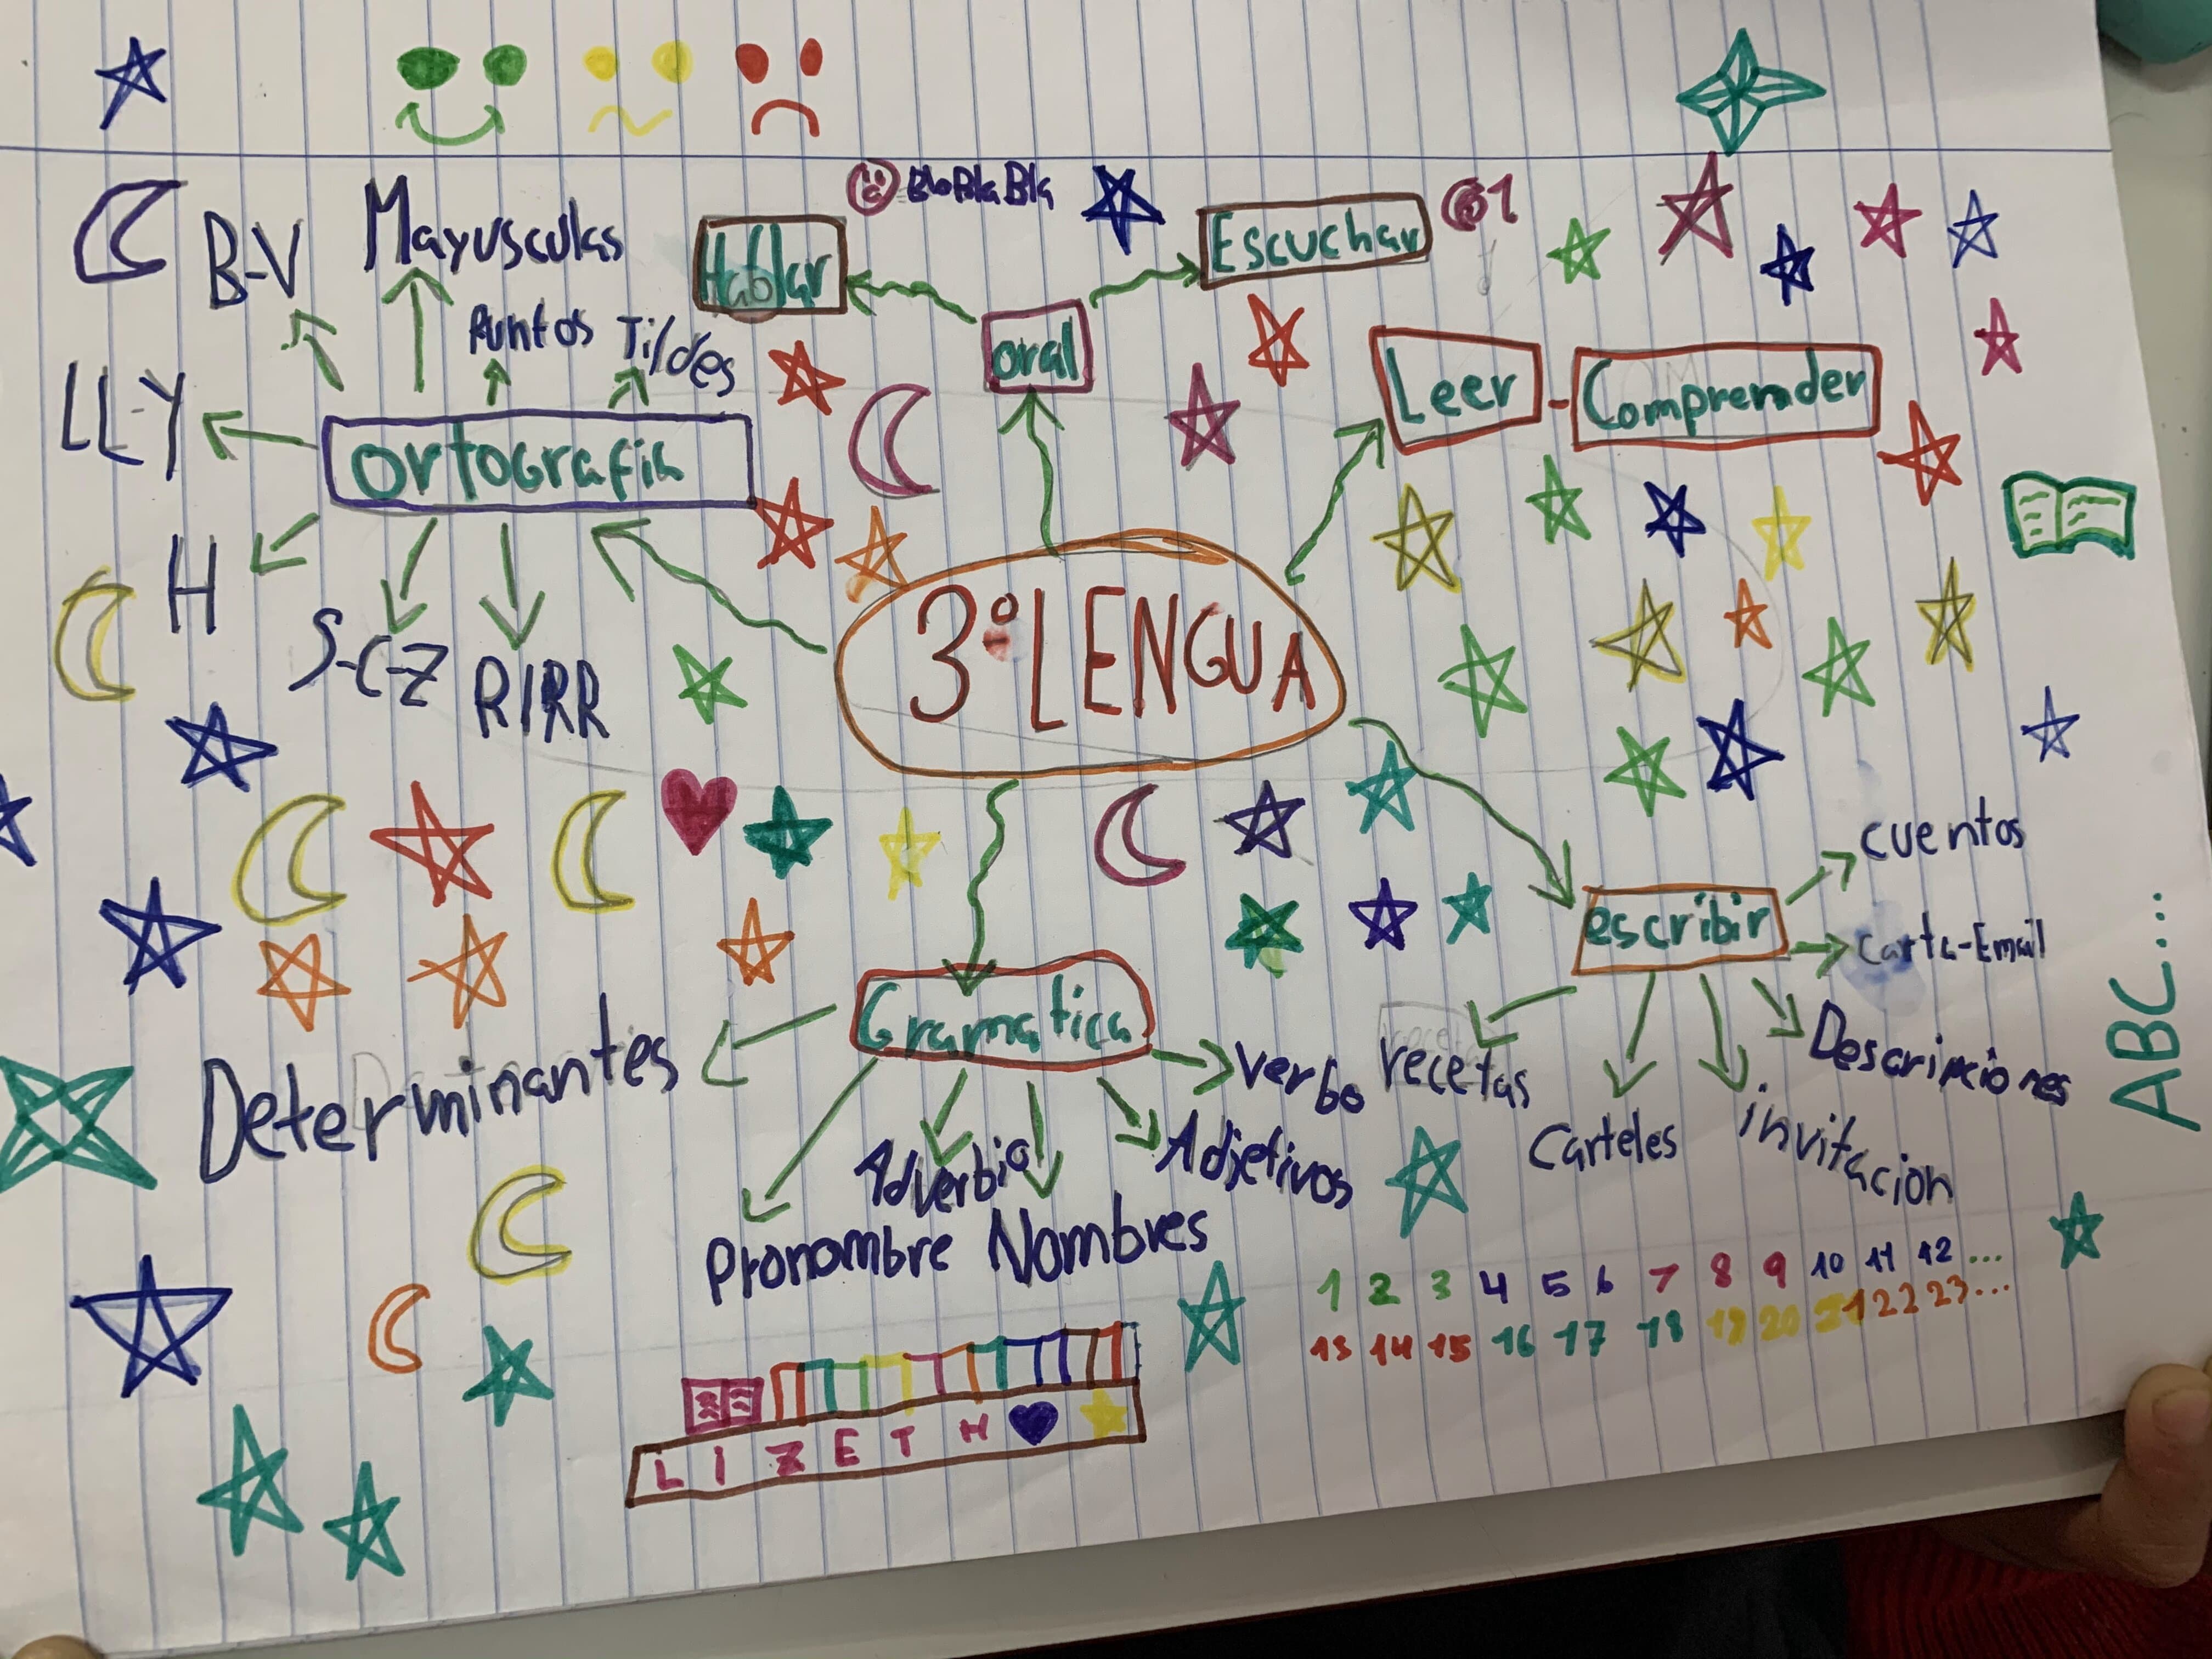 BlaBlaBla
Hablar
Escuchar
oral
Leer - Compremder
B-V
Mayusculas
Puntos
Tildes
LL-Y
ortografia
H
S-C-Z
R/RR
3º LENGUA
escribir
cuentos
carta-Email
Descripciones
invitacion
Carteles
recetas
Gramatica
Determinantes
Pronombre
Adverbio
Nombres
Adjetivos
verbo
ABC...
1 2 3 4 5 6 7 8 9 10 11 12 ...
13 14 15 16 17 18 19 20 21 22 23...
LIZETH